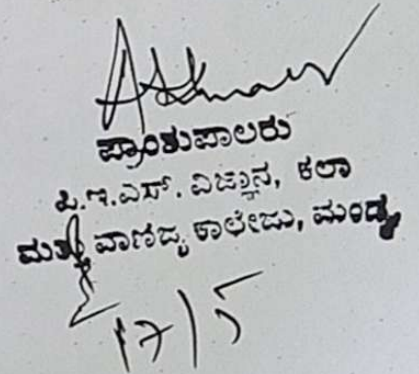 ಪ್ರಾಂಶುಪಾಲರು
ಪಿ.ಇ.ಎಸ್. ವಿಜ್ಞಾನ, ಕಲಾ
ಮತ್ತು ವಾಣಿಜ್ಯ ಕಾಲೇಜು, ಮಂಡ್ಯ
17/5